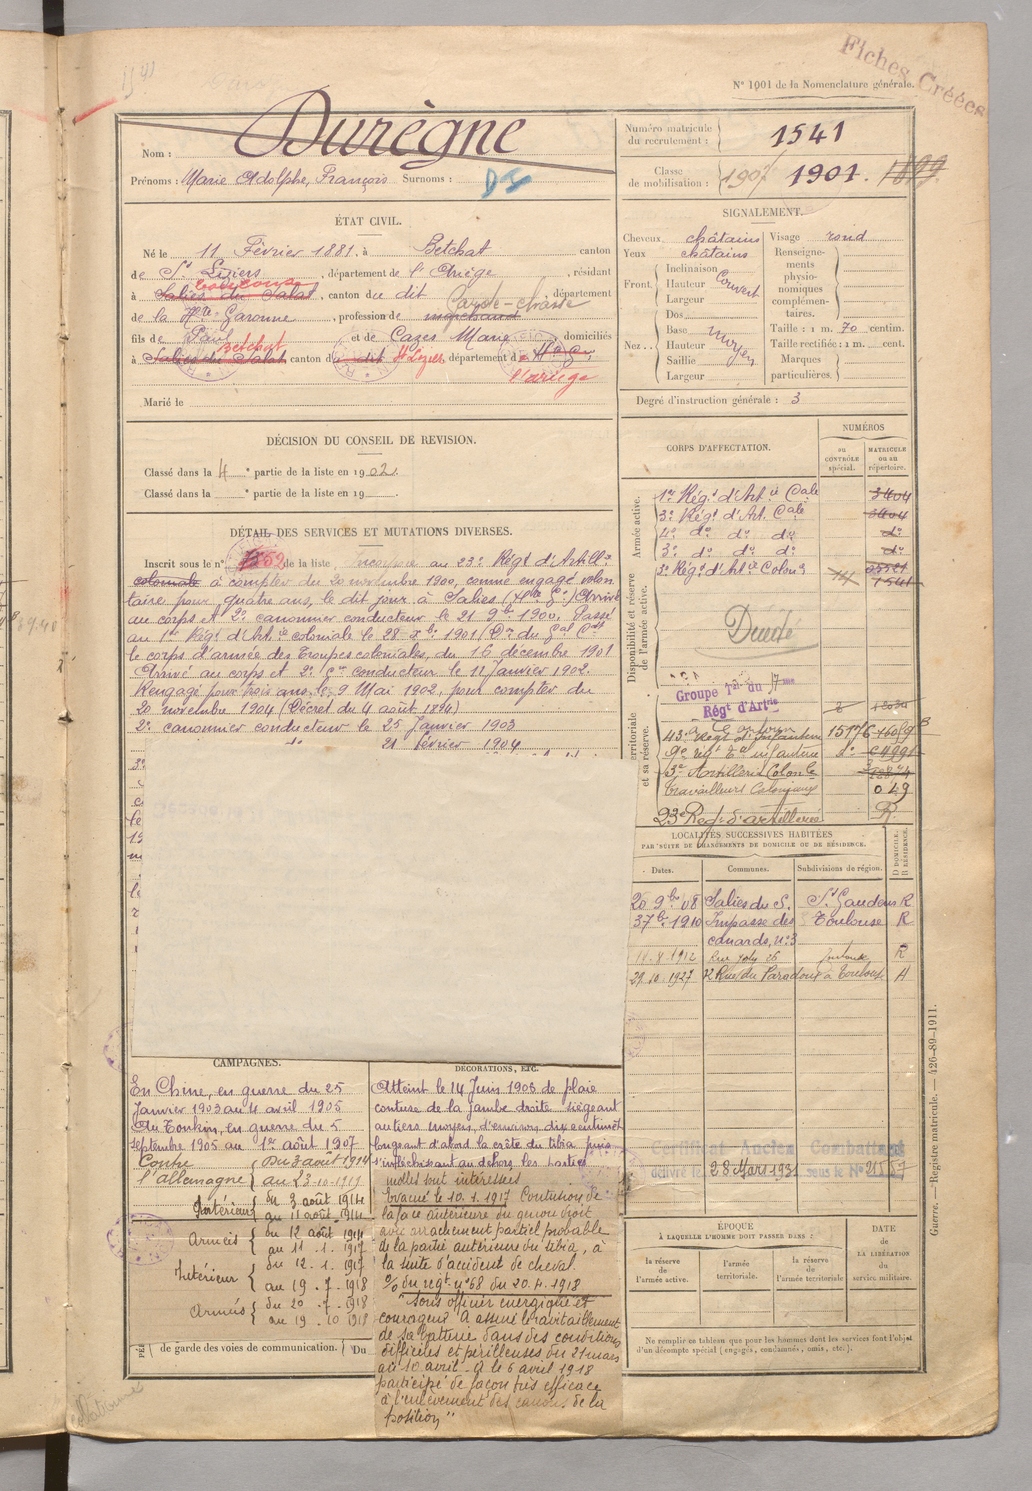 Fiches Créées
N° 1001 de la Nomenclature générale.
Nom : Durègne
Prénoms : Marie Adolphe, François Surnoms :
Numéro matricule du recrutement : 1541
Classe de mobilisation : 1907 1901. 1899
ÉTAT CIVIL.
Né le 11 Février 1881, à Betchat canton
de St Liziers, département de l'Ariège, résidant
à Salies du Salat, canton du dit, département
Garde-chasse
de la Hte Garonne, profession de marchand
fils de Paul et de Cazes Marie domiciliés
Betchat St Lizier
à Salies du Salat canton du dit, département de Hte Gne
l'ariège
Marié le
SIGNALEMENT.
Cheveux châtains Visage rond
Yeux châtains
Front. Inclinaison Hauteur Largeur Couvert
Renseignements physionomiques complémentaires.
Nez. Dos Base Hauteur Saillie Largeur moyen
Taille : 1 m. 70 centim.
Taille rectifiée : 1 m. cent.
Marques particulières.
Degré d'instruction générale : 3
DÉCISION DU CONSEIL DE REVISION.
Classé dans la 4e partie de la liste en 1902.
Classé dans la e partie de la liste en 19
DÉTAIL DES SERVICES ET MUTATIONS DIVERSES.
Inscrit sous le n° 52 de la liste Incorporé au 23e Régt d'Artillie
coloniale à compter du 20 novembre 1900, comme engagé volon
taire pour quatre ans, le dit jour à Salies (Hte Gne) Arrivé
au corps et 2e canonnier conducteur le 21 9bre 1900. Passé
au 1er Régt d'Artie coloniale le 28 Xbre 1901 (On du Gal Ct
le corps d'armée des Troupes coloniales, du 16 décembre 1901
Arrivé au corps et 2e Cer conducteur le 11 Janvier 1902.
Rengagé pour trois ans, le 9 Mai 1902, pour compter du
20 novembre 1904 (Décret du 4 août 1894)
2e canonnier conducteur le 25 Janvier 1903
d° 21 février 1904
CORPS D'AFFECTATION.
NUMÉROS
au CONTRÔLE spécial.
MATRICULE ou au répertoire.
Armée active.
1er Régt d'Artie Cale 3404
3e Régt d'Art. Cale 3404
4e d° d° d° d°
3e d° d° d° d°
Disponibilité et réserve de l'armée active.
3e Régt d'Artie Colone 1541
Groupe Tal du 17me
Régt d'Artie
territoriale et sa réserve.
43e Régt d'Infanterie 15176
9e régt Tal infanterie d°
3e Artillerie Colonle
Travailleurs Coloniaux 049
23e Régt d'artillerie R.
LOCALITÉS SUCCESSIVES HABITÉES
PAR SUITE DE CHANGEMENTS DE DOMICILE OU DE RÉSIDENCE.
D DOMICILE. R RÉSIDENCE.
Dates. Communes. Subdivisions de région.
20 9bre 08 Salies du S. St Gaudens R
3 7bre 1910 Impasse des Toulouse R
canards, n° 3
18-8-1912 Rue Joly 26 Toulouse R
29.10.1927 Rue du Paradoux à Toulouse
CAMPAGNES.
En Chine, en guerre du 25
Janvier 1903 au 4 avril 1905
Au Tonkin, en guerre du 5
septembre 1905 au 1er août 1907
Contre l'allemagne du 3 août 1914
au 23-10-1917
Intérieur du 3 août 1914
au 11 août 1914
Armées du 12 août 1914
au 11. 1. 1917
Intérieur du 12. 1. 1917
au 19. 7. 1918
Armées du 20. 7. 1918
au 19. 10 1918
de garde des voies de communication. Du
DÉCORATIONS, ETC.
Atteint le 14 Juin 1903 de plaie
contuse de la jambe droite siégeant
au tiers moyen, d'environ dix centimèt
longeant d'abord la crête du tibia puis
s'infléchissant au dehors, les parties
molles sont intéressées
Évacué le 10.1.1917 Contusion de
la face antérieure du genou droit
avec arrachement partiel probable
de la partie antérieure du tibia, à
la suite d'accident de cheval.
% du régt n° 68 du 20.4.1918
"Sous officier énergique et
courageux a assuré le ravitaillement
de sa batterie dans des conditions
difficiles et périlleuses du 21 mars
au 10 avril - a le 6 avril 1918
participé de façon très efficace
à l'enlèvement des canons de la
position"
Certificat Ancien Combattant
délivré le 28 Mars 1931 sous le N° 21557
ÉPOQUE
À LAQUELLE L'HOMME DOIT PASSER DANS :
DATE DE LA LIBÉRATION du service militaire.
la réserve de l'armée active.
l'armée territoriale.
la réserve de l'armée territoriale
Ne remplir ce tableau que pour les hommes dont les services font l'objet
d'un décompte spécial (engagés, condamnés, omis, etc.).
Guerre. — Registre matricule. — 426-89-1911.